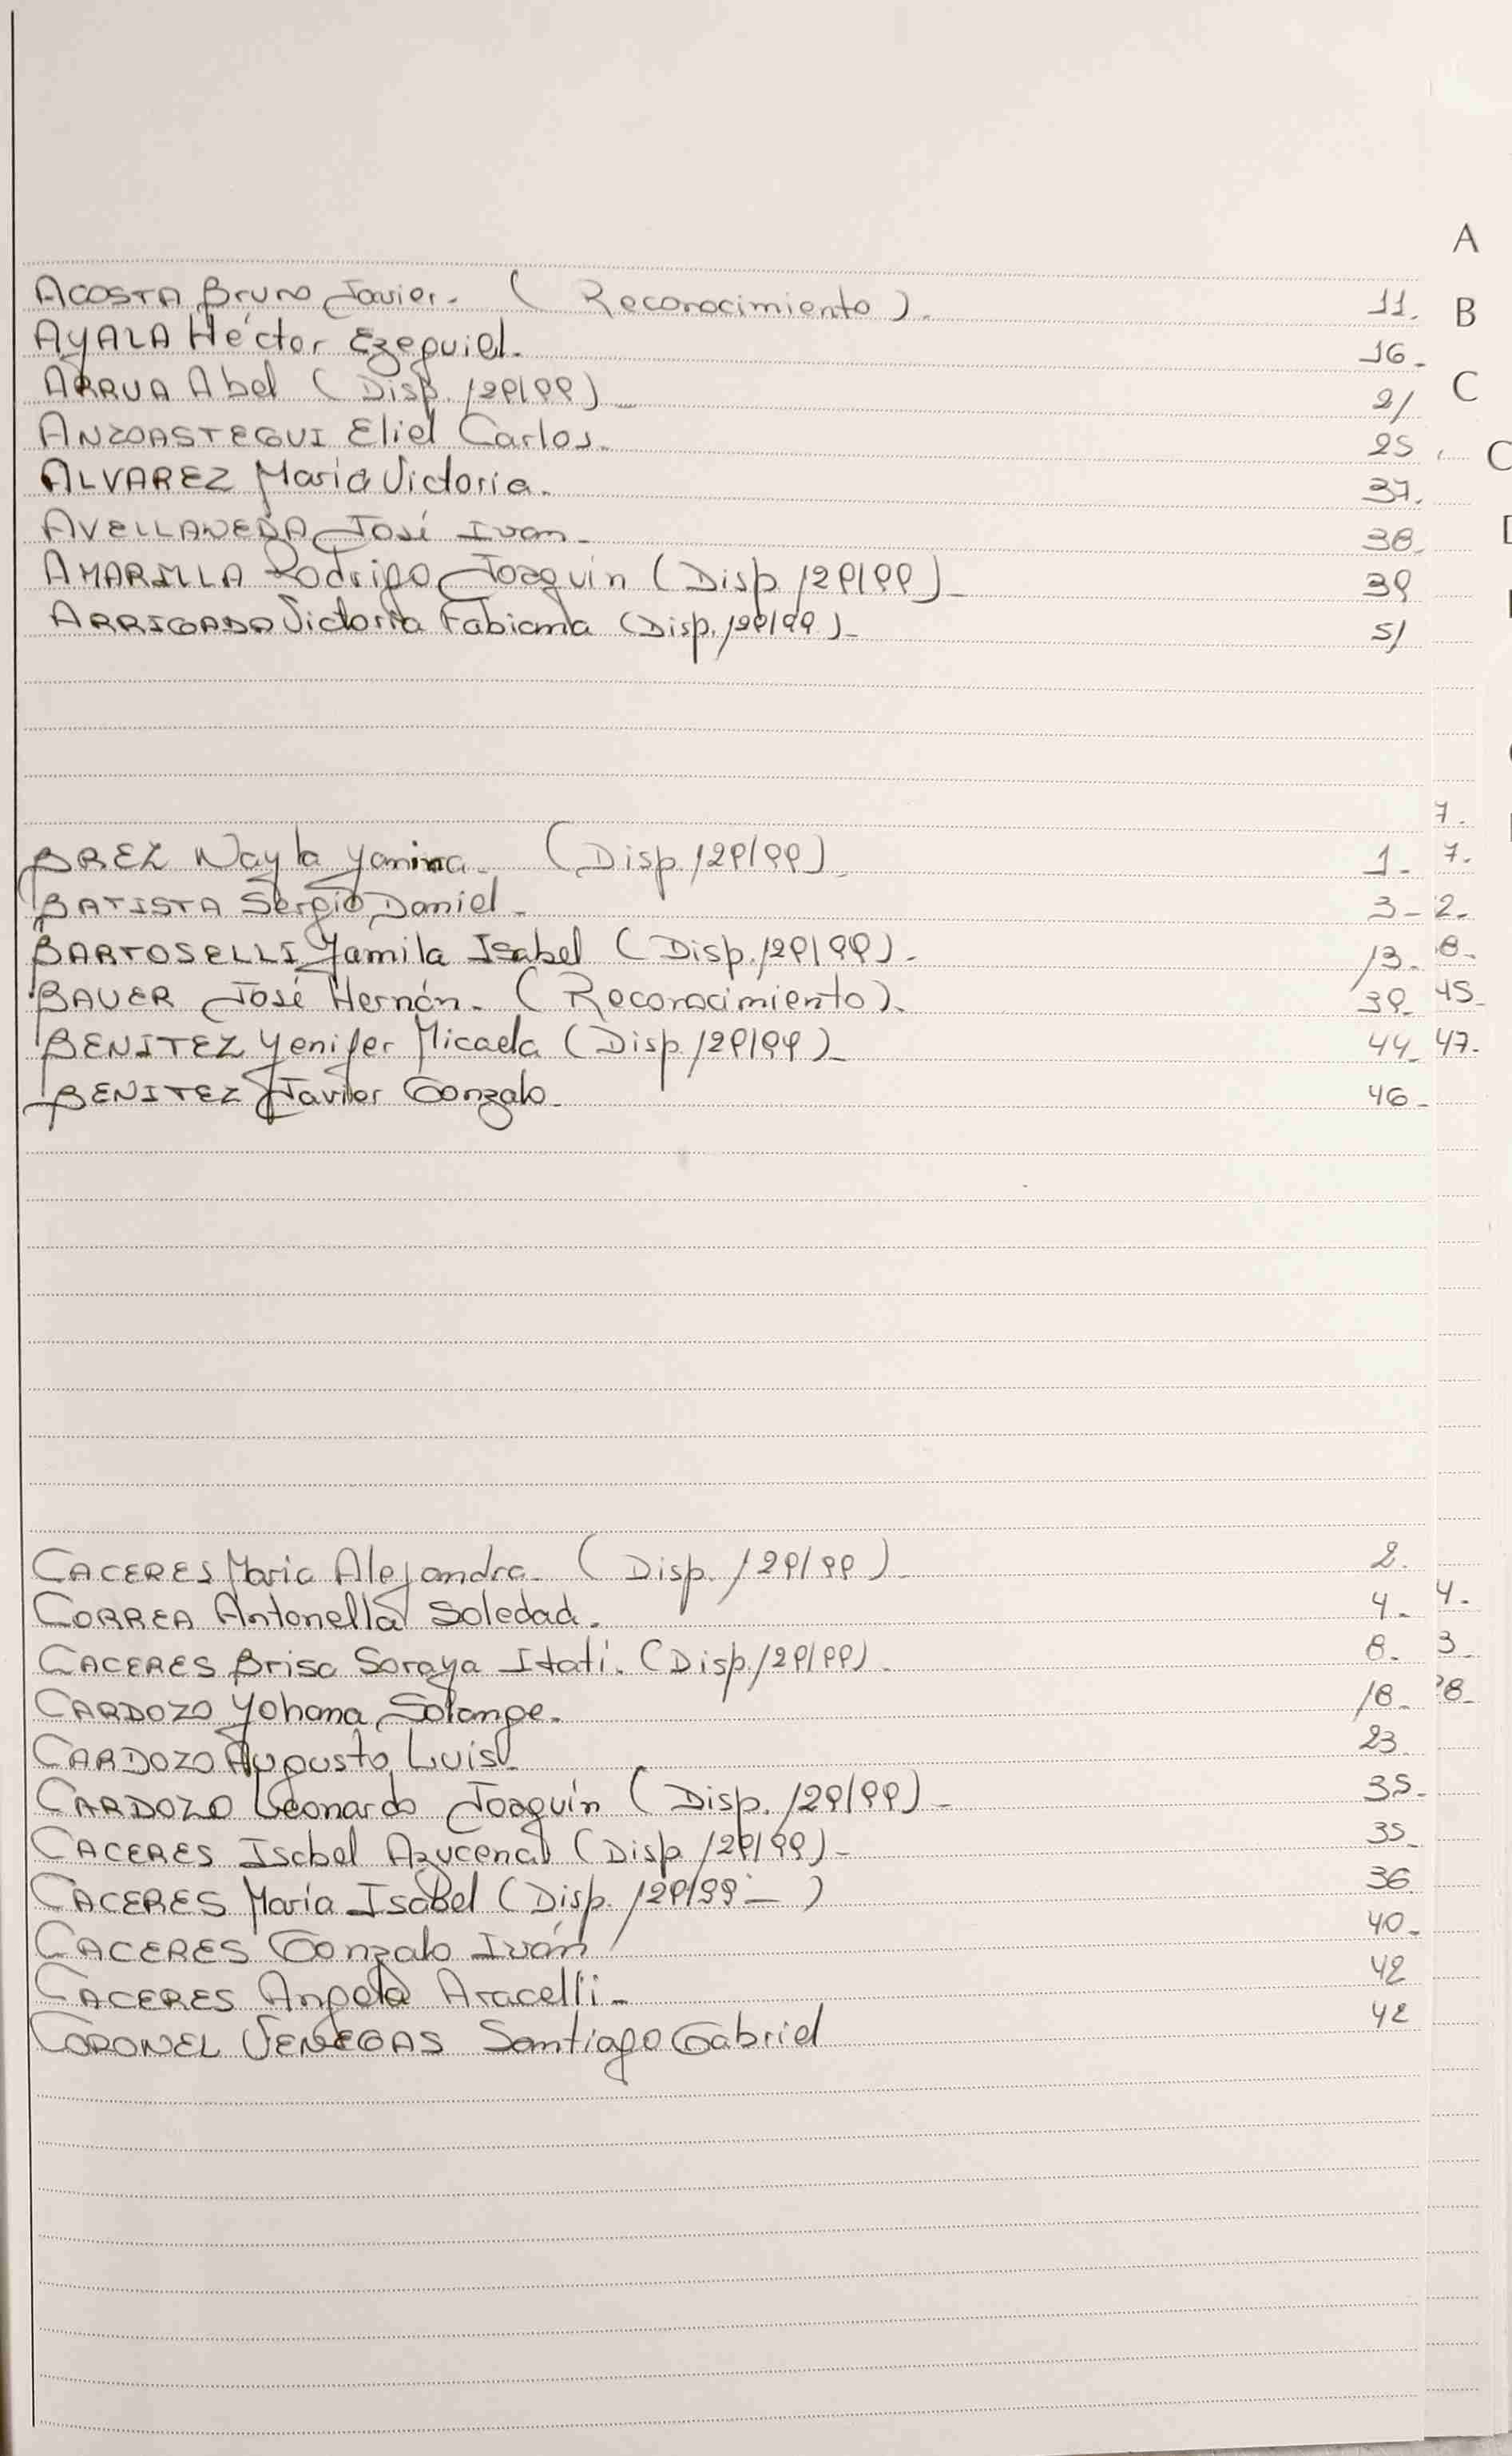 A
ACOSTA Bruno Javier. (Reconocimiento). 11.
B
AYALA Héctor Ezequiel. 16.
ARRUA Abel (Disp. 129/99) 21
C
ANZOASTEGUI Eliel Carlos. 25
ALVAREZ María Victoria. 37.
AVELLANEDA José Ivan. 38.
AMARILLA Rodrigo Joaquín (Disp. 129/99) 39
ARRIGADA Victoria Fabiana (Disp. 129/99) 51
7.
BREZ Nayla Yanina. (Disp. 129/99) 1. 7.
BATISTA Sergio Daniel. 3. 2.
BARTOSELLI Yamila Isabel (Disp. 129/99). 13. 8.
BAUER José Hernán. (Reconocimiento). 39. 45.
BENITEZ Yenifer Micaela (Disp. 129/99) 44. 47.
BENITEZ Javier Gonzalo. 46.
CACERES Maria Alejandra. (Disp. 129/99) 2.
CORREA Antonella Soledad. 4. 4.
CACERES Brisa Soraya Itatí. (Disp. 129/99). 8. 3
CARDOZO Yohana Solange. 18. 8.
CARDOZO Augusto Luis. 23
CARDOZO Leonardo Joaquín (Disp. 129/99) 35.
CACERES Isabel Azucena (Disp. 129/99) 35
CACERES María Isabel (Disp. 129/99 ) 36
CACERES Gonzalo Iván 40.
CACERES Angela Aracelli. 42
CORONEL VENEGAS Santiago Gabriel 42